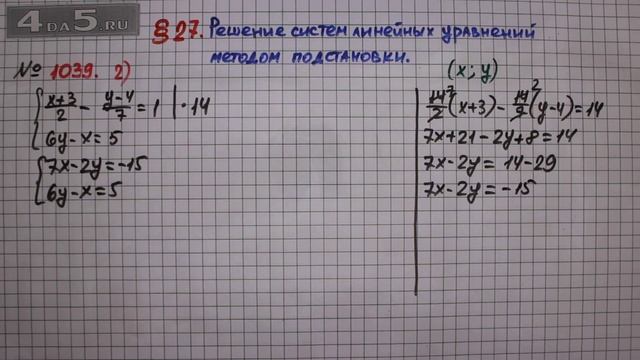 4DA5.RU
§27. Решение систем линейных уравнений
методом подстановки.
№ 1039. 2)
(x; y)
{ (x+3)/2 - (y-4)/7 = 1 | · 14
6y - x = 5
{ 7x - 2y = -15
6y - x = 5
14/2 ⁷ (x+3) - 14/7 ² (y-4) = 14
7x + 21 - 2y + 8 = 14
7x - 2y = 14 - 29
7x - 2y = -15